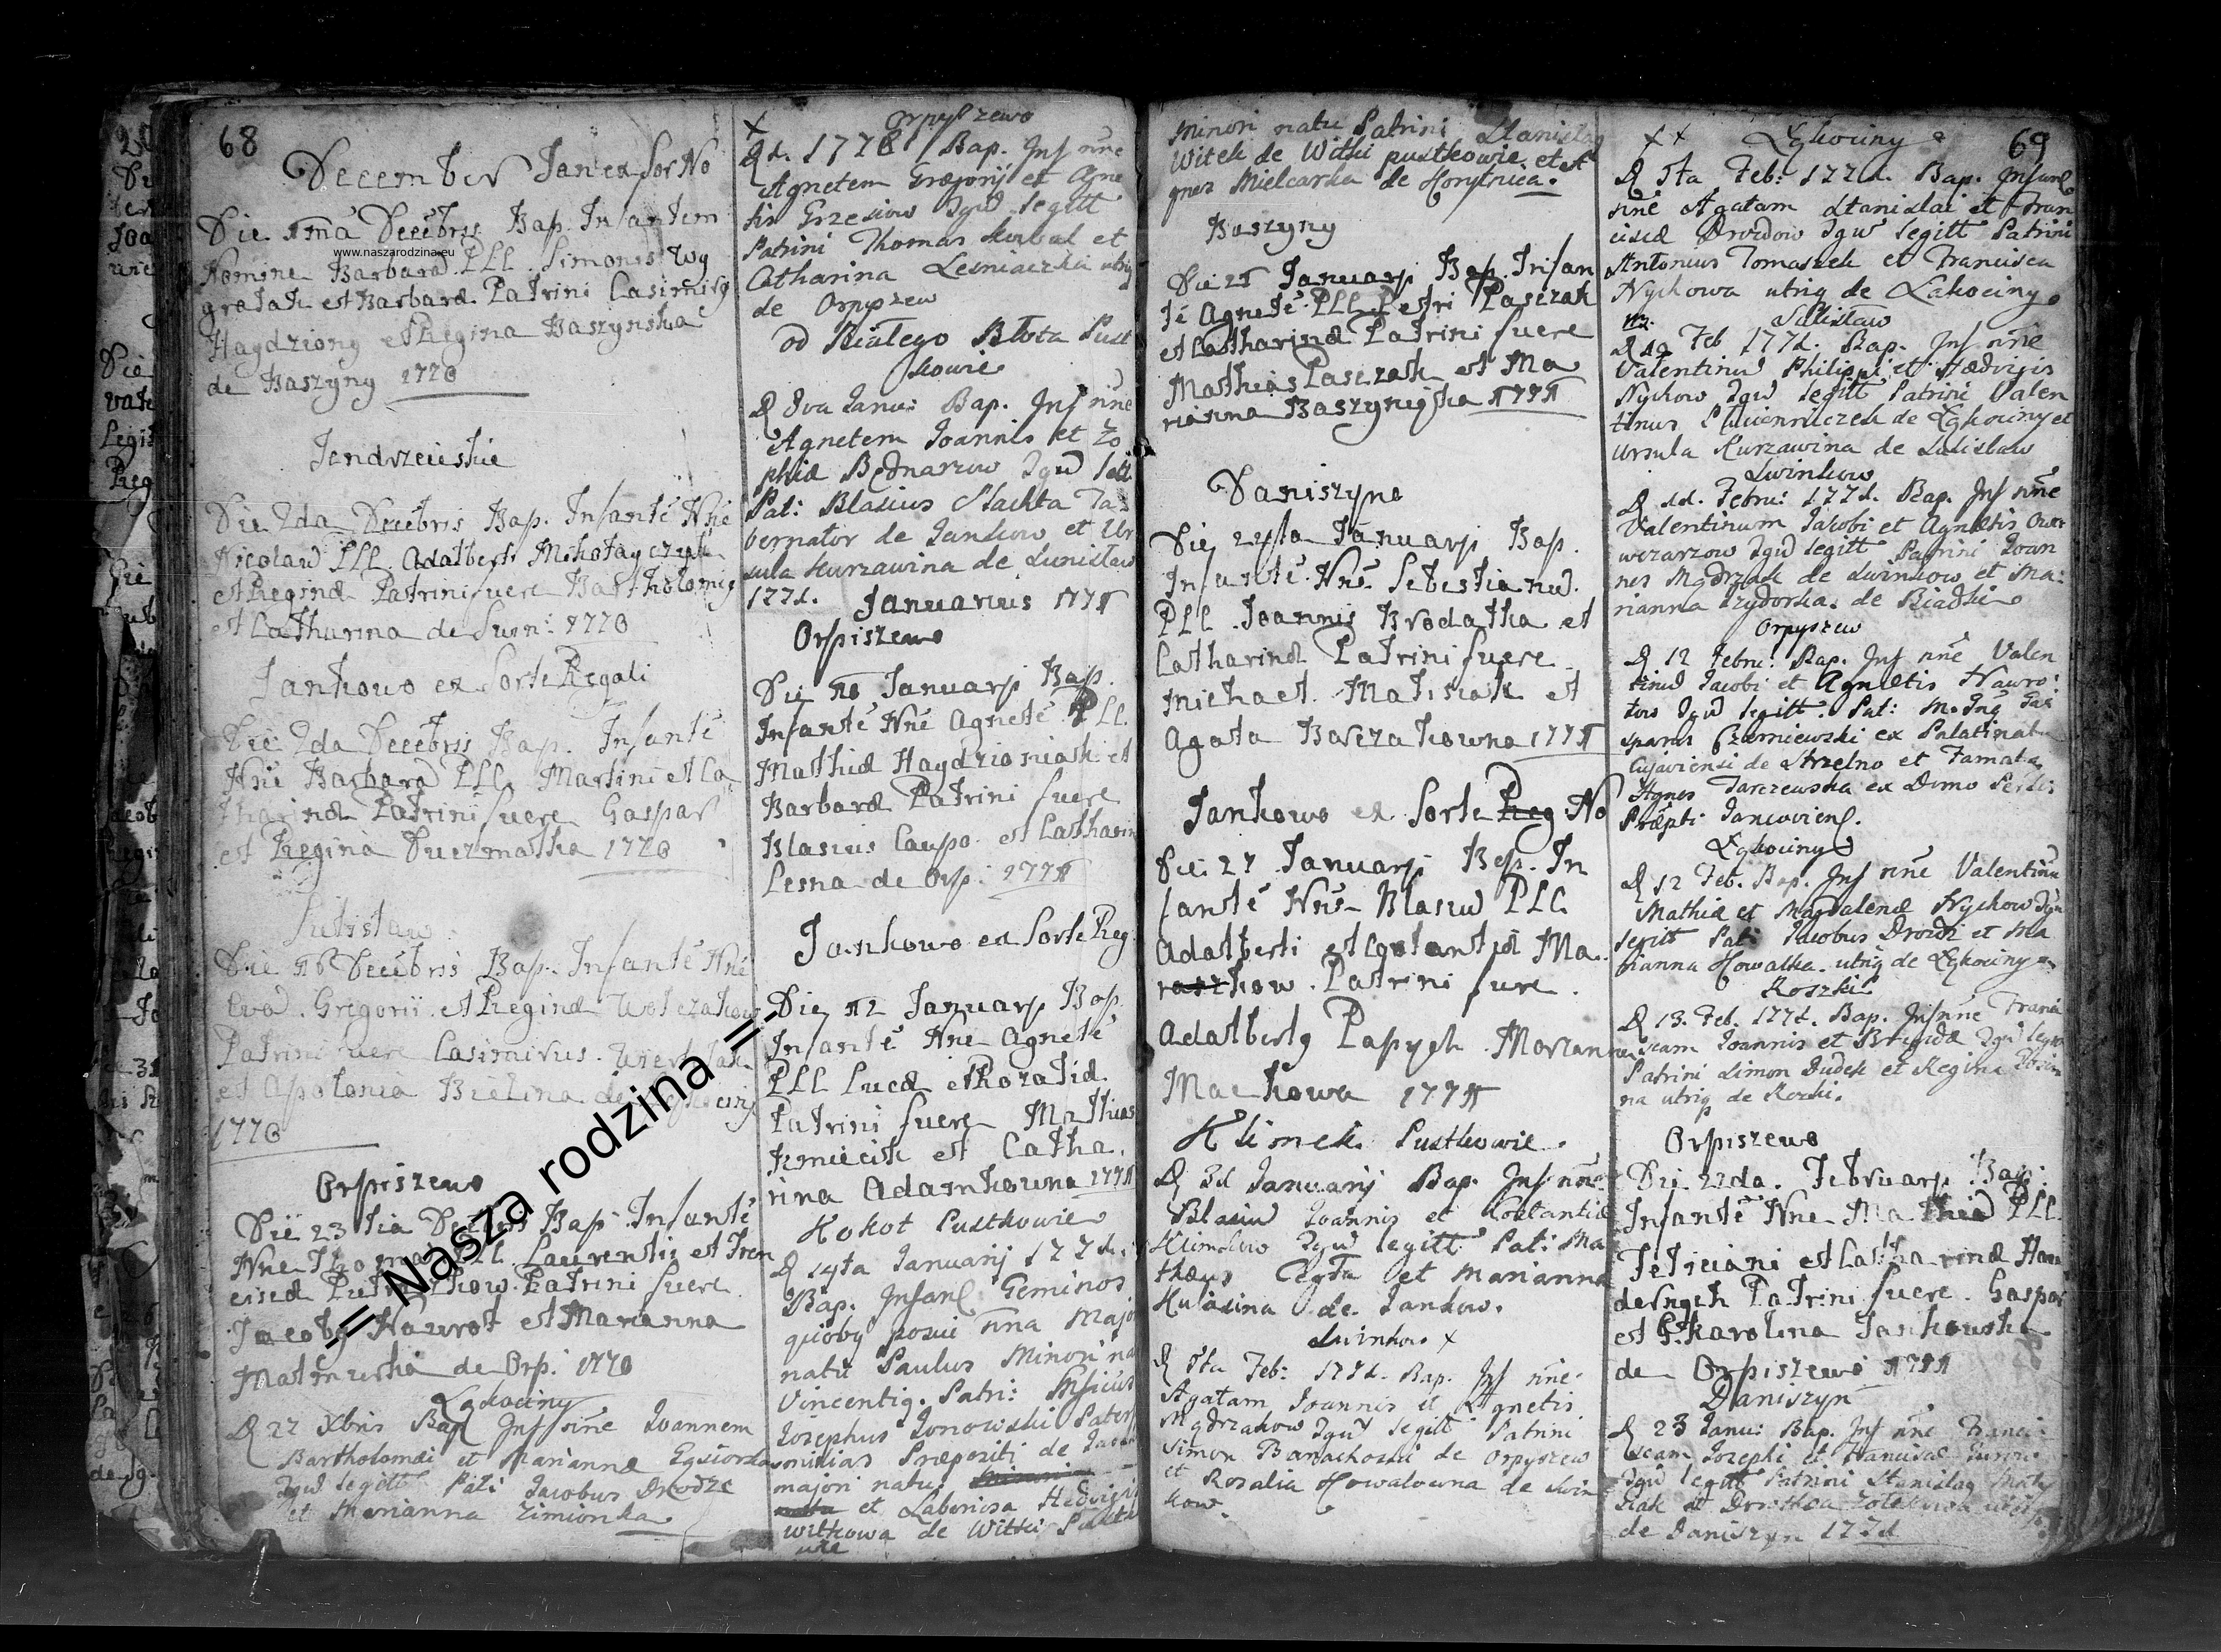 68
December Jan ex Sor No
Die 1ma Decebris Bap. Infantem
www.naszarodzina.eu
Nomine Barbara PLL. Simonis Wy
gratak et Barbaræ Patrini Casimirg
Haydziony et Regina Baszynska
de Baszyny 1770
Jendrzeiuskie
Die 2da Decebris Bap. Infanté Nné
Nicolau PLL. Adalberti Mikołayczak
et Reginæ Patrini fuere Bartholomig
et Catharina de
Jankowo ex Sorte Regali
Die 2da Decebris Bap. Infanté
Nné Barbara PLL Martini et Ca
tharinæ Patrini fuere Gaspar
et Regina Duczmalka 1770
Sulislaw
Die 16 Decebris Bap. Infanté Nné
Eva Gregorii et Reginæ
Patrini fuere Casimirus
et Apolonia Bielina de
1770
Orpiszewo
Die 23 tia Decebris Bap. Infanté
Nne Thoma PLL Laurentii et Fran
ciscæ Patrini fuere
Jacobg Nawrot et Marianna
de Orp. 1770
Lgkociny
D 27 Xbris Bap Inf nne Joannem
Bartholomæi et Mariannæ
Igw legitt Pati Jacobus Drodze
et Marianna Zimionka
= Nasza rodzina =
x Orpyszewo
D 1. 1770 Bap. Inf nne
Agnetem Gregorij et Agne
tis Grzesiow Igw legitt
Patrini Thomas Kubal et
Catharina Lesniaczka utrig
de Orpyszew
od Białego Błota Pust
kowie
D 3va Janu: Bap. Inf nne
Agnetem Joannis et Zo
phiæ Bednarzow Igw legitt
Pat: Blasius Slachta Ta
bernator de Jankow et Ur
sula Kurzawina de Sunislaw
1771. Januarius 1771
Orpiszewo
Die 10 Januarij Bap.
Infanté Nné Agneté PLL.
Mathiæ Haydzioniak et
Barbaræ Patrini fuere
Blasius Caupo et Catharin
Lesna de Orp: 1771
Jankowo ex Sorte Reg
Die 12 Januarij Bap.
Infanté Nne Agneté
PLL Lucæ et
Patrini fuere Mathias
Kmiecik et Catha
rina Adamkowna 1771
Kokot Pustkowie
D 14ta Januarij 1771.
Bap. Infan Geminos
quiobg posui nna Major
natu Paulus Minori na
Vincentig. Patri:
Josephus Jonowski Pater
Præpositi de
majori natu
et Laboriosa Hedvigis
Witkowa de Witki Pustk
wie
minori natu Patrini Stanislag
Witek de Witki pustkowie et A
gnes Mielcarka de Korytnica.
Baszyny
Die 21 Januarij Bap. Infan
té Agneté PLL Petri Pasczak
et Catharinæ Patrini fuere
Mathias Pasczak et Ma
rianna Baszynigska 1771
Daniszyno
Die 24ta Januarij Bap.
Infanté Nné Sebestianu
PLL Joannis Brodatka et
Catharinæ Patrini fuere
Michael Matisiak et
Agata Barczakowna 1771
Jankowo ex Sorte Reg No
Die 27 Januarij Bap. In
fanté Nné Blasiu PLL
Adalberti et Constantiæ Ma
roszkow Patrini fure
Adalbertg Papych Marianna
Mackowa 1771
Klimek Pustkowie
D 31 Januarij Bap. Inf nne
Blasiu Joannis et Costantiæ
Klimkow Igw legitt Pat: Ma
thæus Czyta et Marianna
Kulasina de Jankow.
Swinkow x
D 5ta Feb: 1771. Bap. Inf nne
Agatam Joannis et Agnetis
Mądrzakow Igw legitt Patrini
Simon Banachowski de Orpyszew
et Rosalia Kowalowna de Swin
kow.
x x Lgkociny 69
D 5ta Feb: 1771. Bap. Infant
nne Agatam Stanislai et Fran
ciscæ Drozdow Igw legitt Patrini
Antonius Tomaszek et Francisca
Nyckowa utrig de Lakociny.
Sulislaw
D 10 Feb 1771. Bap. Inf nne
Valentinu Philippi et Hædvigis
Nyckow Igw legitt Patrini Valen
tinus de Lgkociny et
Ursula Kurzawina de Sulislaw
Swinkow
D 11. Febru: 1771. Bap. Inf nne
Valentinum Jacobi et Agnetis Ow
czarzow Igw legitt Patrini Joan
nes Mądrzak de Swinkow et Ma:
rianna Szydorka de Biadki
Orpyszew
D 12 Febru: Bap. Inf nne Valen
tinu Jacobi et Agnetis Nawro:
tow Igw legitt. Pat: M. Gas
sparus Czarniewski ex Palatinatu
Cujaviensi de Strzelno et Famata
Agnes Tarczewska ex Domo
Præpti
Lgkociny
D 12 Feb. Bap. Inf nne Valentinu
Mathiæ et Magdalenæ Nyckow Igw
legitt Pat: Jacobus Drozdz et Ma
rianna Kowalka utrig de Lgkociny
Roszki
D 13. Feb. 1771. Bap. Inf nne Franci
scam Joannis et Brigidæ Igw legitt
Patrini Simon Dudek et Regina
na utrig de Roszki.
Orpiszewo
Die 22da. Februarij Bap:
Infanté Nne Mathia PLL.
Feliciani et Catharinæ
Patrini fuere Gaspar
et Karolina Jankowska
de Orpiszewo 1771
Daniszyn
D 23 Janu: Bap. Inf nne Franci
scam Josephi et Franciscæ
Igw legitt Patrini Stanislag
et Dorothea utrig
de Daniszyn 1771